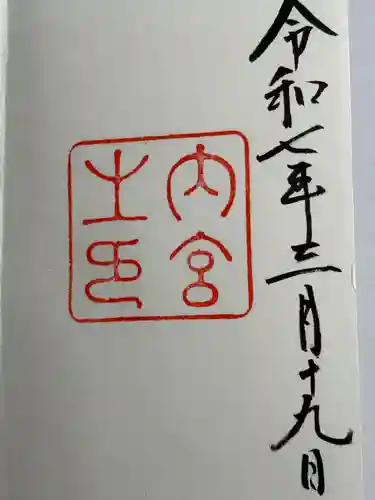 令和七年三月十九日
内宮
之印